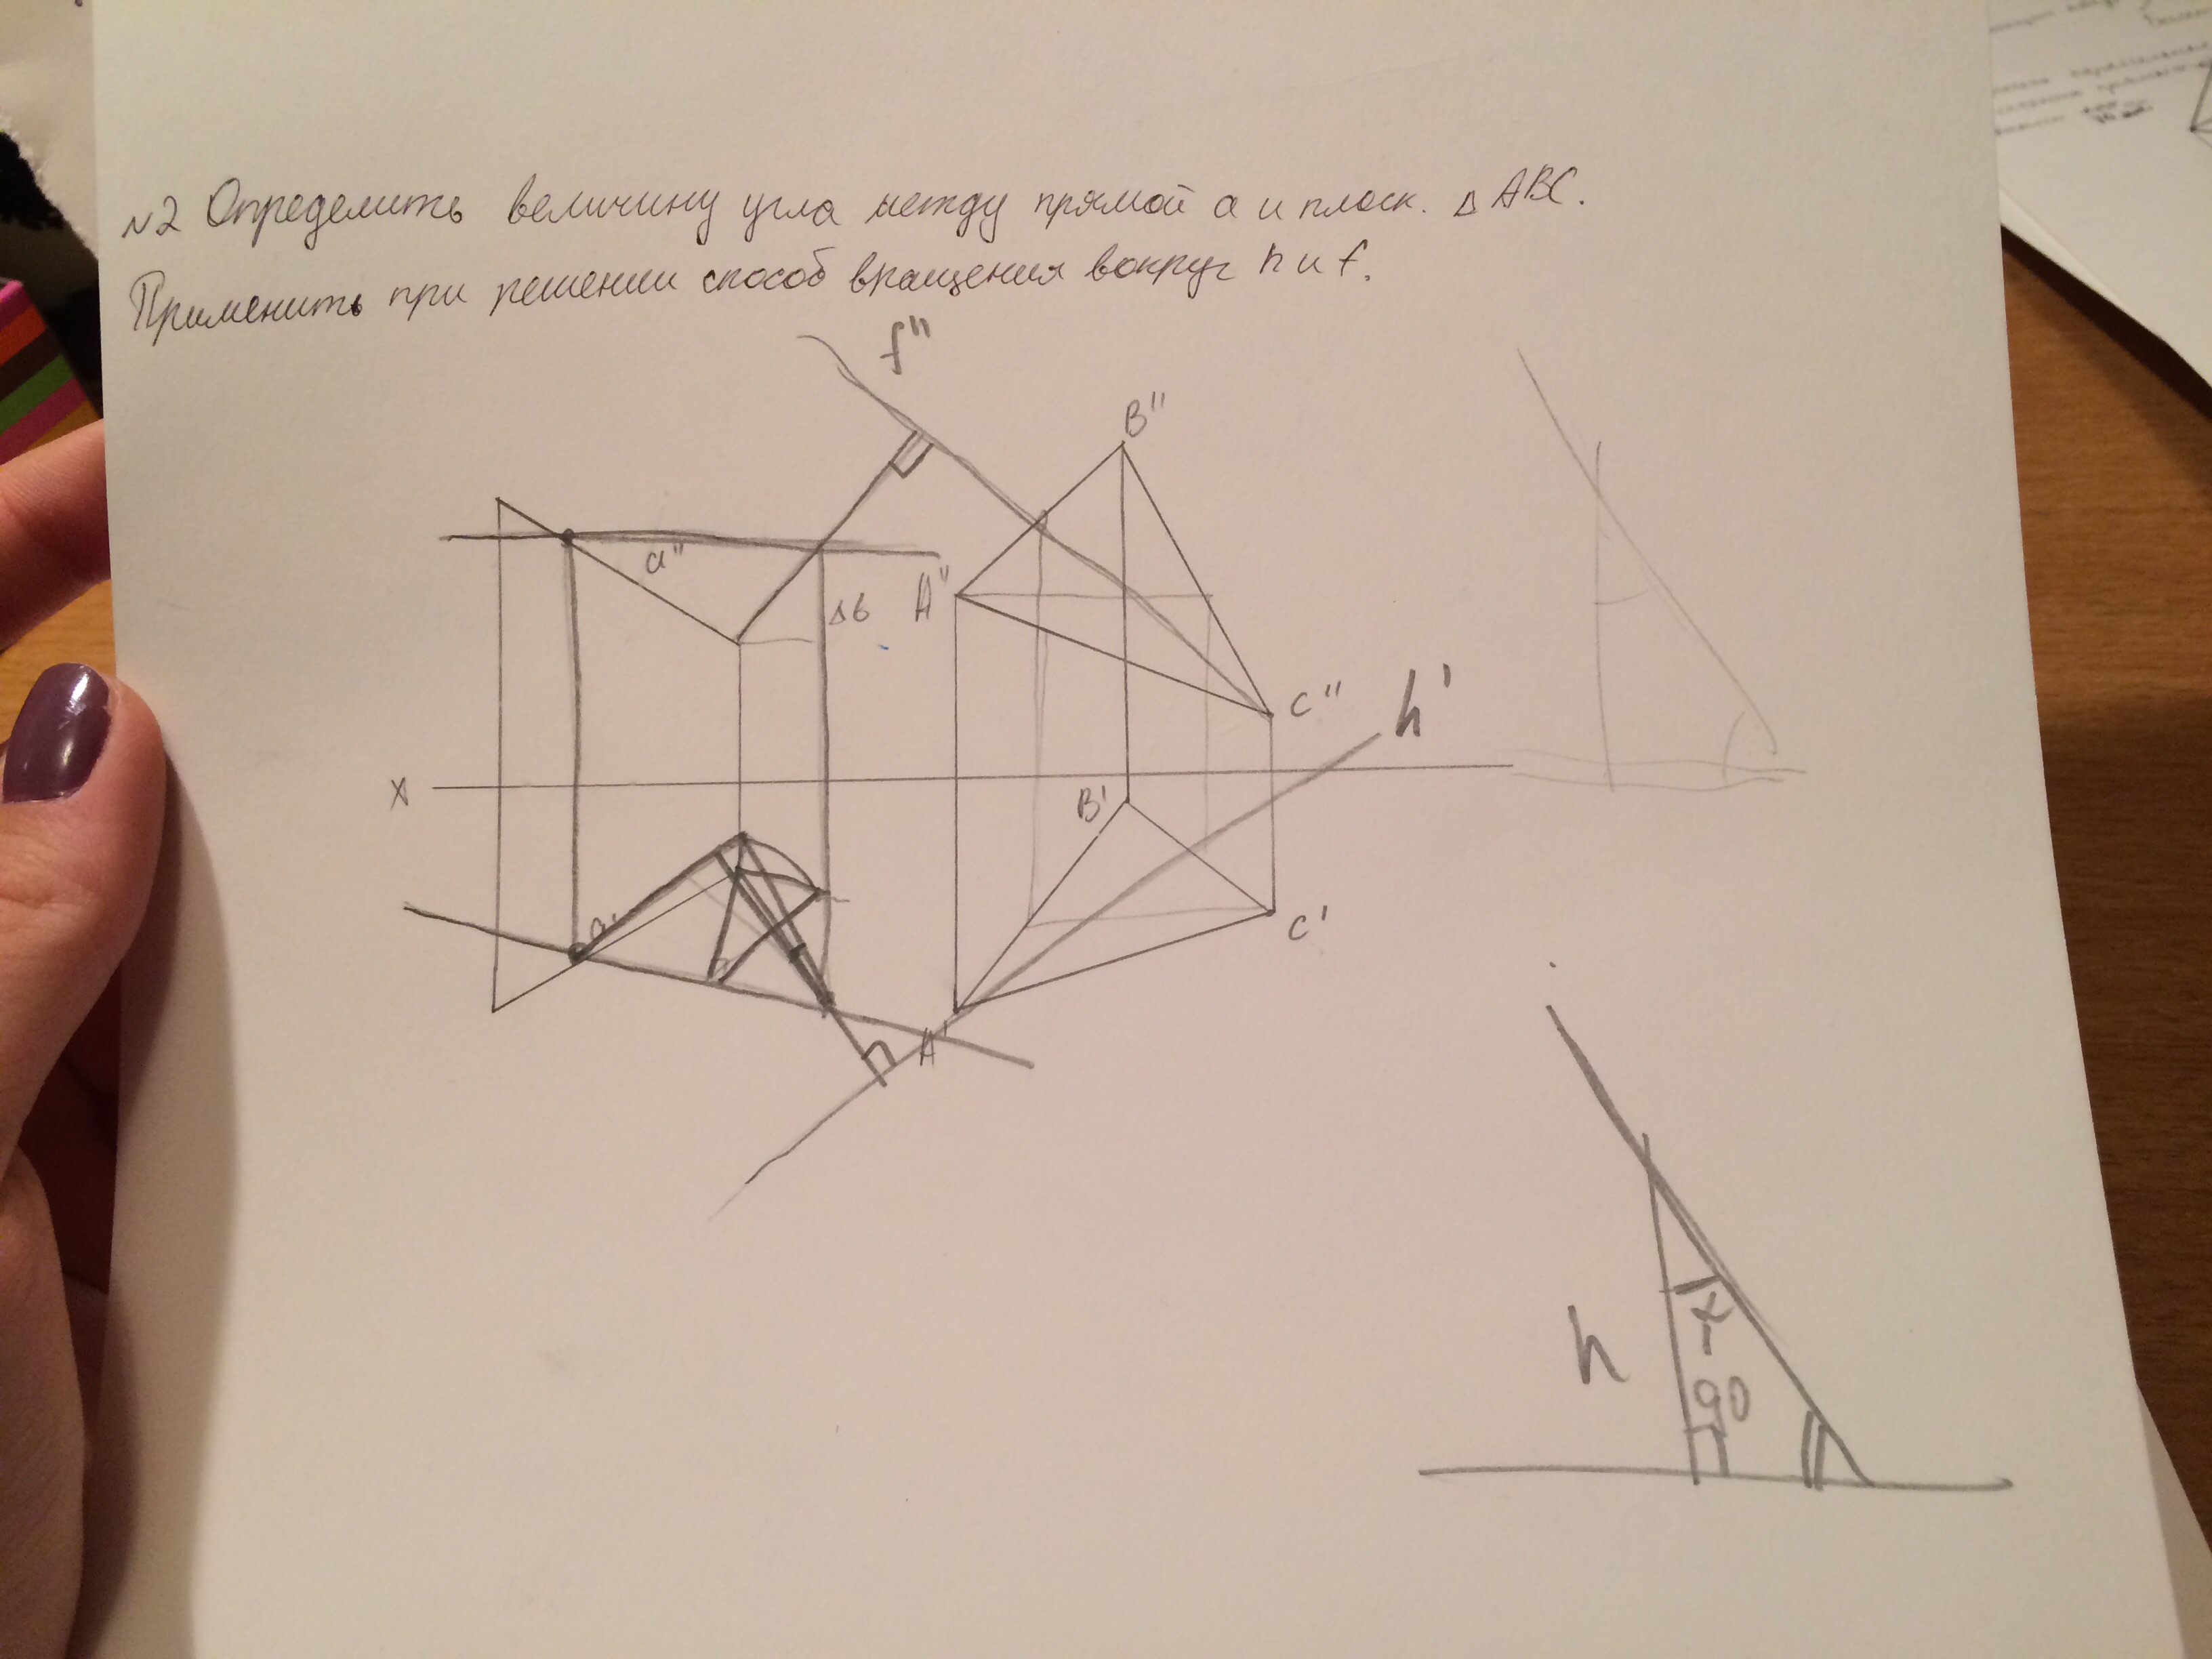 N2 Определить величину угла между прямой a и плоск. Δ ABC.
Применить при решении способ вращения вокруг h и f.
f''
B''
a''
A''
Δб
C''
h'
X
B'
a'
C'
A'
h
90